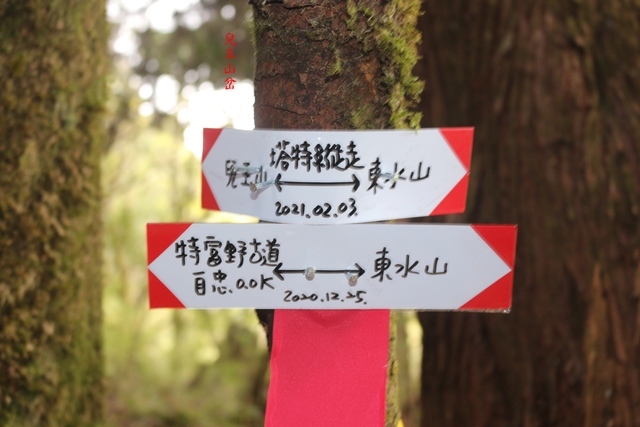 兒玉山岔
塔特縱走
兒玉山 ↔ 東水山
2021.02.03.
特富野古道
自忠.0.0K ↔ 東水山
2020.12.25.